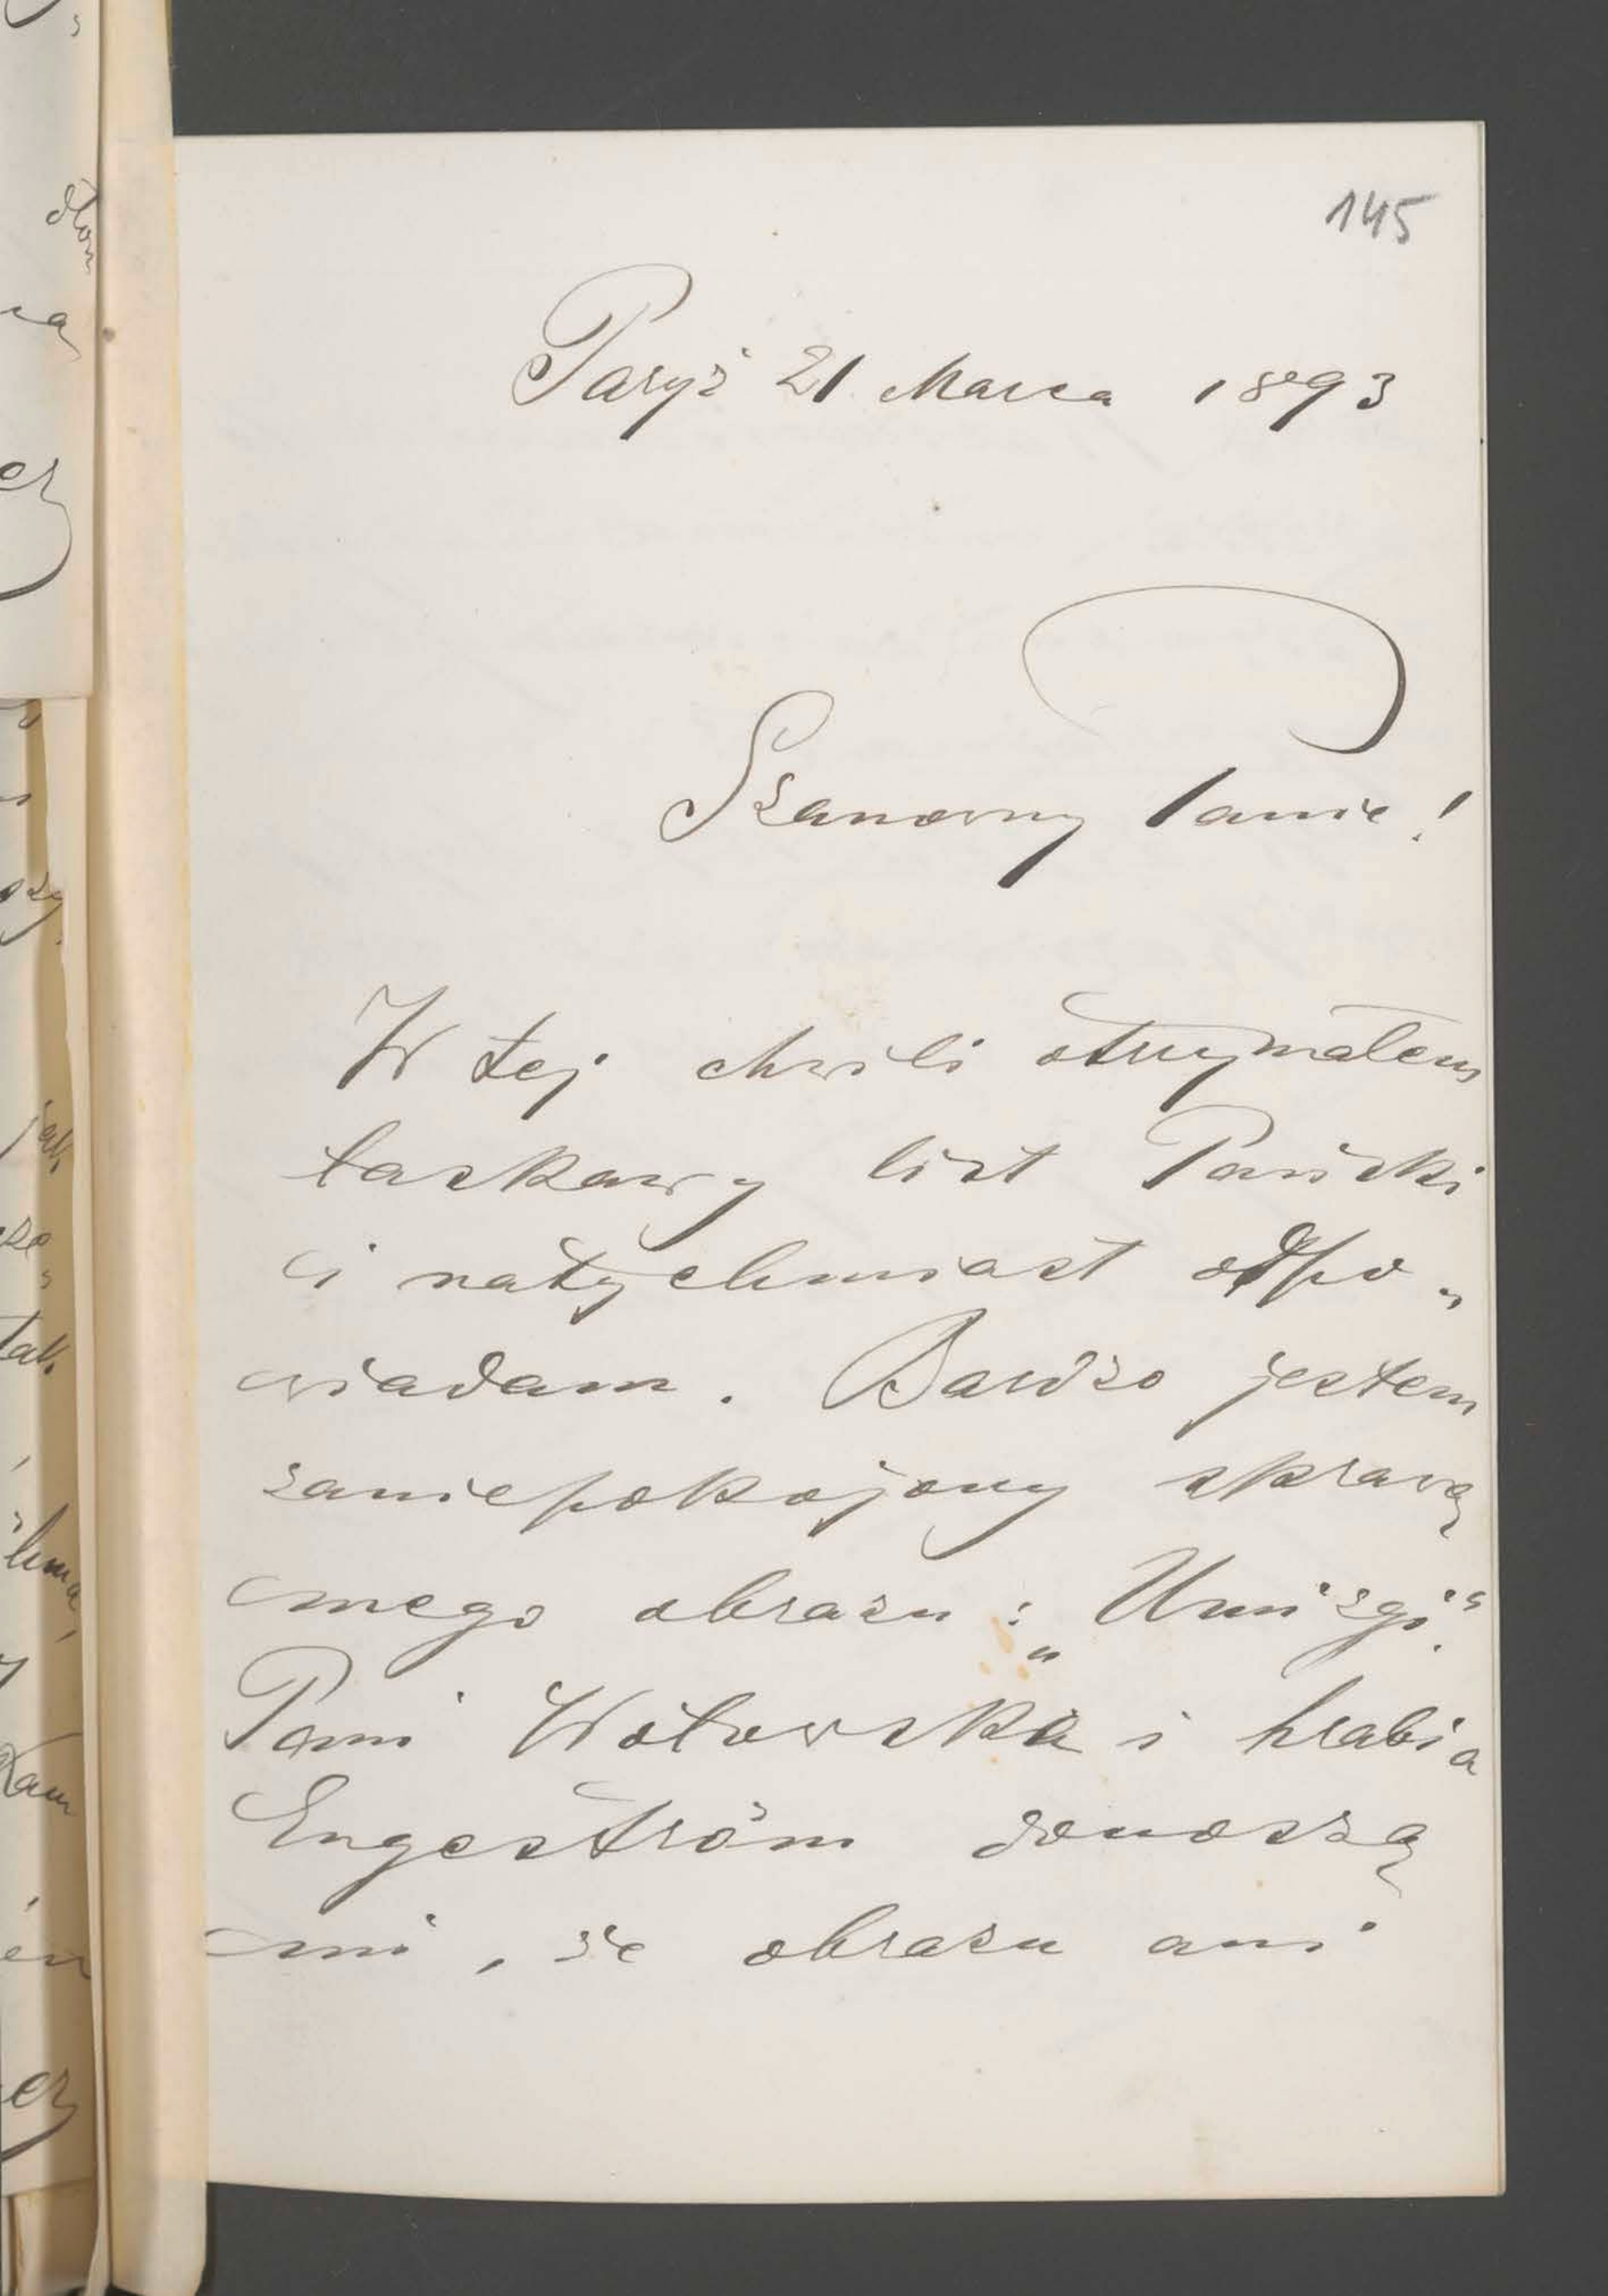 145
Paryż 21 Marca 1893
Szanowny Panie!
W tej chwili otrzymałem
łaskawy list Pański
i natychmiast odpo„
wiadam. Bardzo jestem
zaniepokojony sprawą
mego obrazu: „Umizgi“.
Pani Wołowska i hrabia
Engeström donoszą
mi, że obrazu ani